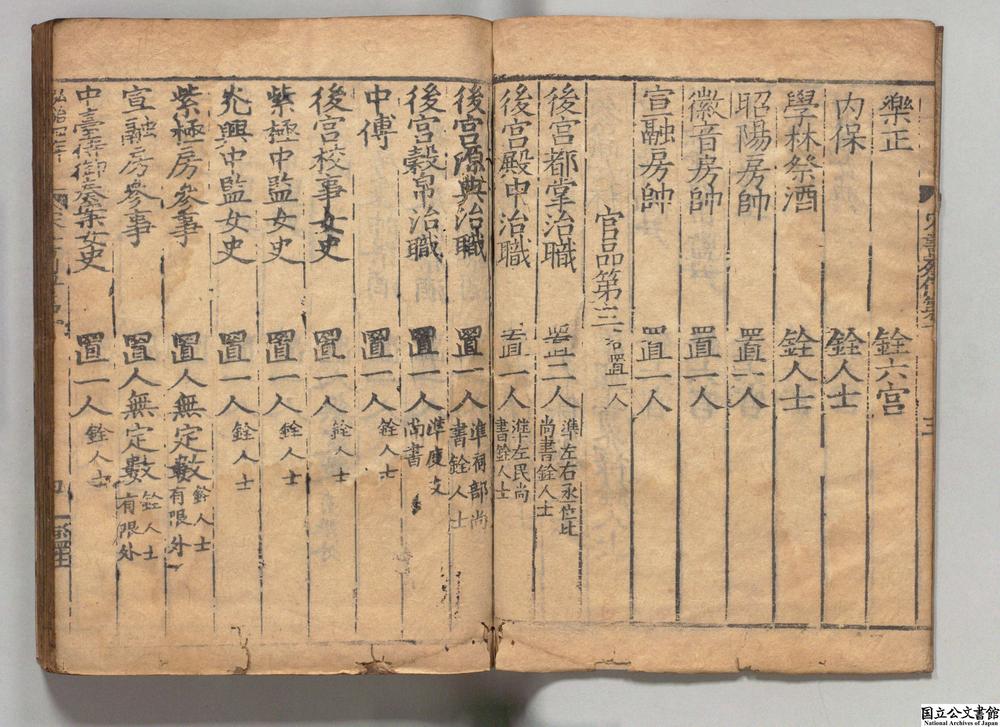 樂正 銓六宮
内保 銓人士
學林祭酒 銓人士
昭陽房帥 置一人
徽音房帥 置一人
宣融房帥 置一人
官品第三 各置一人
後宮都掌治職 置二人 準左右丞位比尚書銓人士
後宮殿中治職 置一人 準左民尚書銓人士
後宮源典治職 置一人 準祠部尚書銓人士
後宮穀帛治職 置一人 準度支尚書
中傅 置一人 銓人士
後宮校事女史 置一人 銓人士
紫極中監女史 置一人 銓人士
光興中監女史 置一人 銓人士
紫極房參事 置人無定數 銓人士有限外
宣融房參事 置人無定數 銓人士有限外
中臺侍御奏案女史 置一人 銓人士
弘治四年
国立公文書館
National Archives of Japan